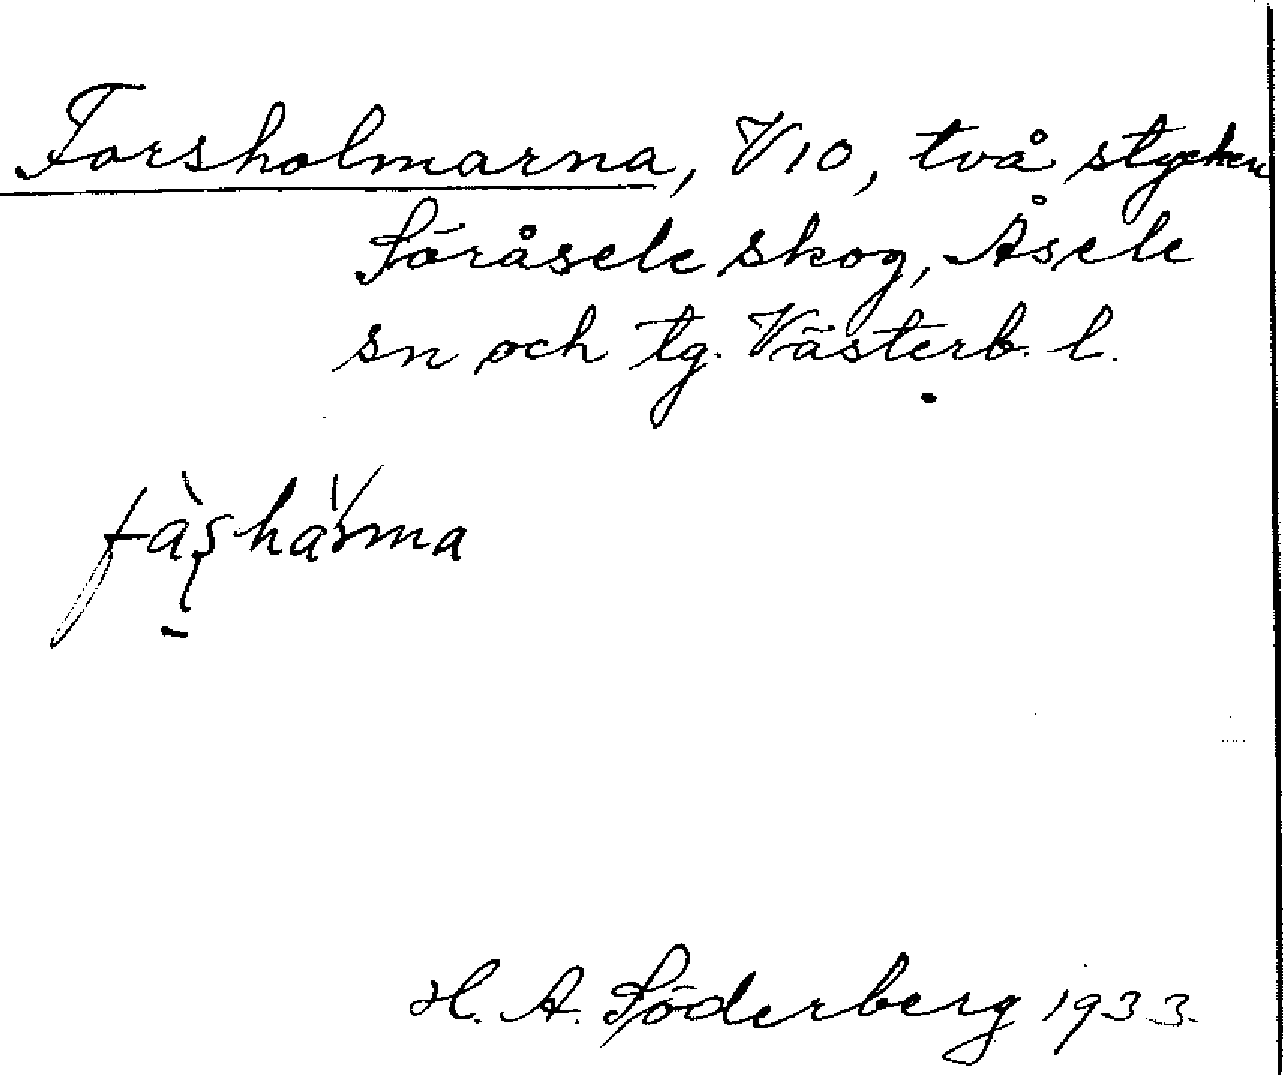 Forsholmarna, V10, två stycken
Söråsele skog, Åsele
sn och tg. Västerb. l.
H. A. Söderberg 1933